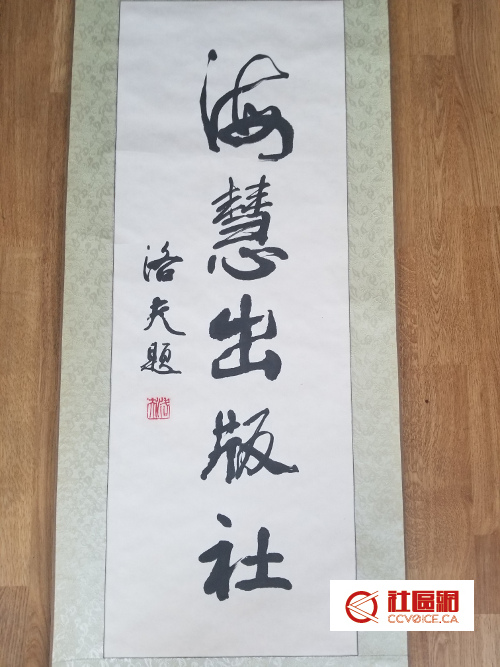 海慧出版社
洛夫題
社區網
CCVOICE.CA